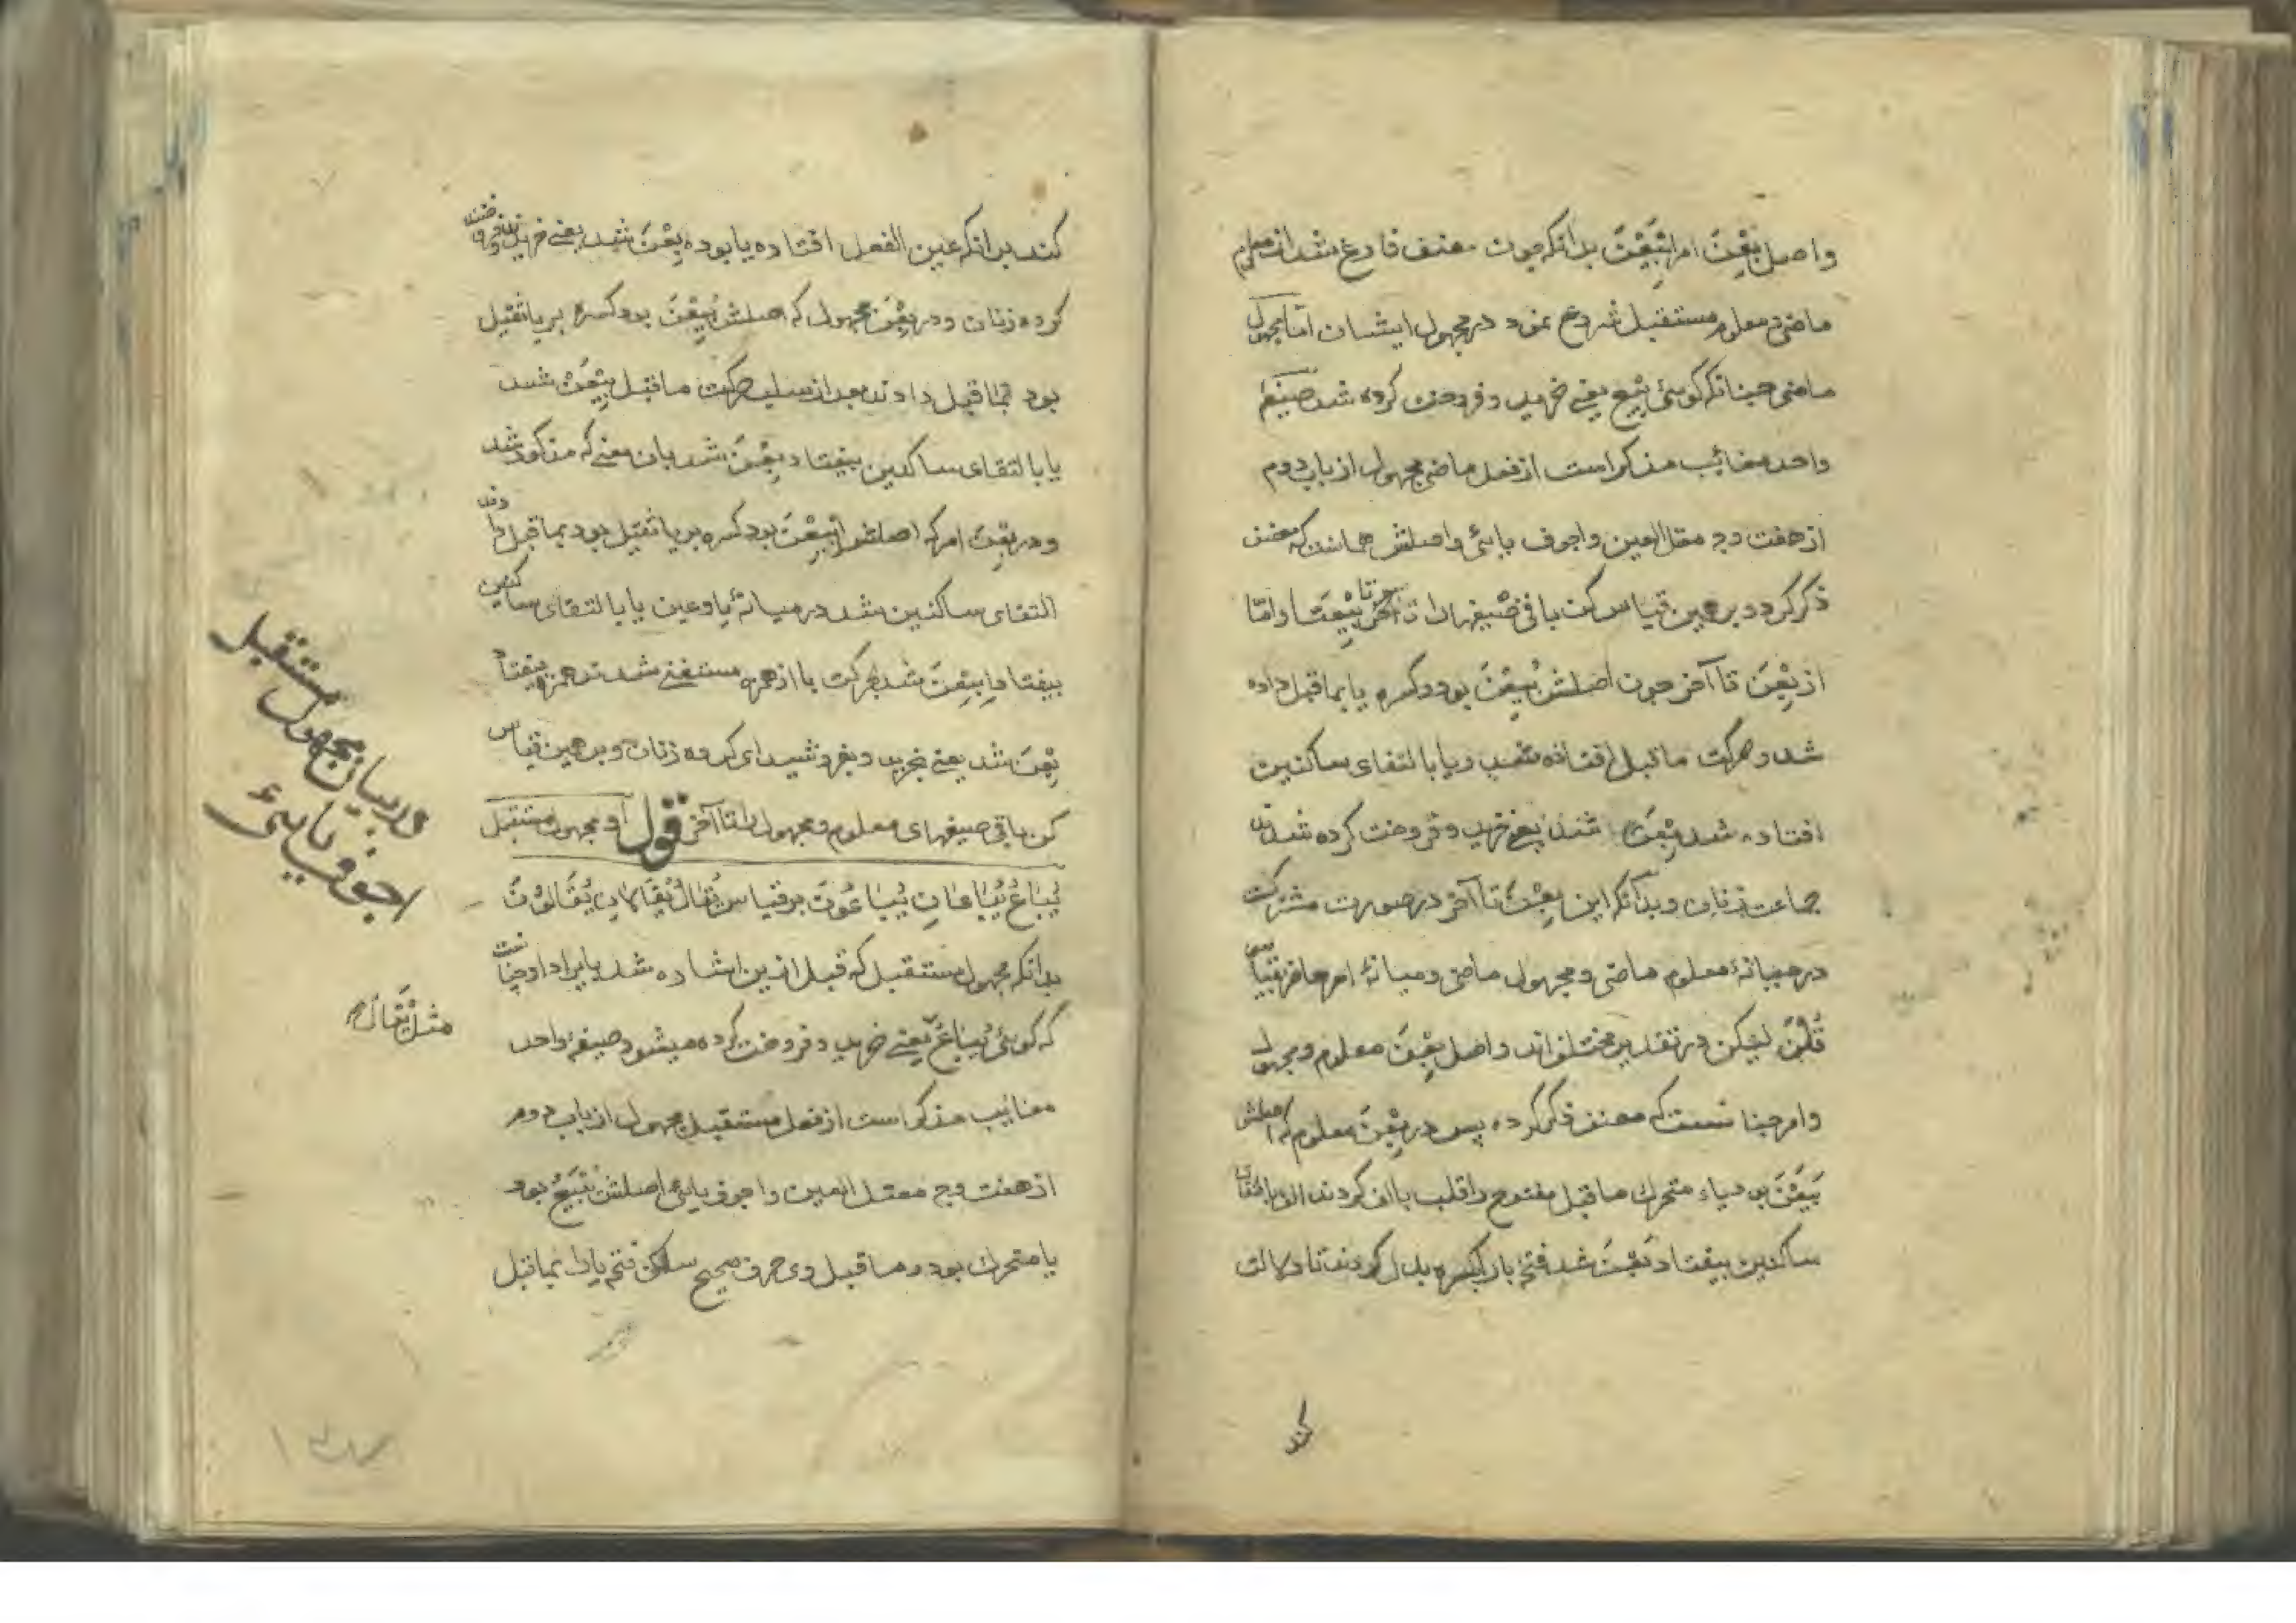 واصل بِعْنَ امر اِبْیِعْنَ بدانکه چون مصنف فارغ شد از معلوم
ماضی و معلوم مستقبل شروع نمود در مجهول ایشان امّا مجهول
ماضی چنانکه گوئی بِیْعَ یعنی خرید و فروخت کرده شد صیغهٔ
واحد مغائب مذکر است از فعل ماضی مجهول از باب دوم
از هفت وج معتل العین واجوف یائی واصلش همانست که مصنف
ذکر کرد و بر همین قیاس کن باقی صیغها را تا آخر بِیْعَتَا وامّا
از بِعْنَ تا آخر چون اصلش بُیِعْنَ بود و کسره یا بماقبل داده
شد و حرکت ماقبل افتاده شد و یا بالتقای ساکنین
افتاده شد بِعْنَ شد یعنی خرید و فروخت کرده شدن
جماعت زنان و بدانکه این بِعْنَ تا آخر در صورت مشترکست
در میانهٔ معلوم ماضی و مجهول ماضی و میانهٔ امر حاضر بقیاس
قُلْنَ لیکن در تقدیر مختلف اند واصل بِعْنَ معلوم و مجهول
وامر چنانست که مصنف ذکر کرده پس در بِعْنَ معلوم که اصلش
بَیَعْنَ بود یاء متحرک ماقبل مفتوح را قلب بالف کردند الف بالتقای
ساکنین بیفتاد بَعْنَ شد فتح با را بکسره بدل کردند تا دلالت
کند
کند بر آنکه عین الفعل افتاده یا بوده بِعْنَ شد یعنی خرید و فروخت
کرده زنان و در بِعْنَ مجهول که اصلش بُیِعْنَ بود کسره بر یا ثقیل
بود بماقبل دادند بعد از سلب حرکت ماقبل بِیْعْنَ شد
یا بالتقای ساکنین بیفتاد بِعْنَ شد بان معنی که مذکور شد
و در بِعْنَ امر که اصلش اِبْیِعْنَ بود کسره بر یا ثقیل بود بماقبل دادند
التقای ساکنین شد در میانهٔ یا و عین یا بالتقای ساکنین
بیفتاد اِبِعْنَ شد بحرکت با از همزه مستغنی شدند همزه بیفتاد
بِعْنَ شد یعنی بخرید و بفروشید ای گروه زنان و بر همین قیاس
کن باقی صیغهای معلوم و مجهول را تا آخر قول او مجهول مستقبل
یُبَاعُ یُبَاعَانِ یُبَاعُونَ بر قیاس یُقَالُ یُقَالَانِ یُقَالُوْنَ
بدانکه مجهول مستقبل که قبل ازین اشاده شد بایراد او چنانست
که گوئی یُبَاعُ یعنی خرید و فروخت کرده میشود صیغهٔ واحد
مغائب مذکر است از فعل مستقبل مجهول از باب دوم
از هفت وج معتل العین واجوف یائی اصلش یُبْیَعُ بود
یا متحرک بود و ماقبل وی حرف صحیح ساکن فتح یا را بماقبل
در بیان مجهول مستقبل
اجوف یائی
مثل یُقَالُ